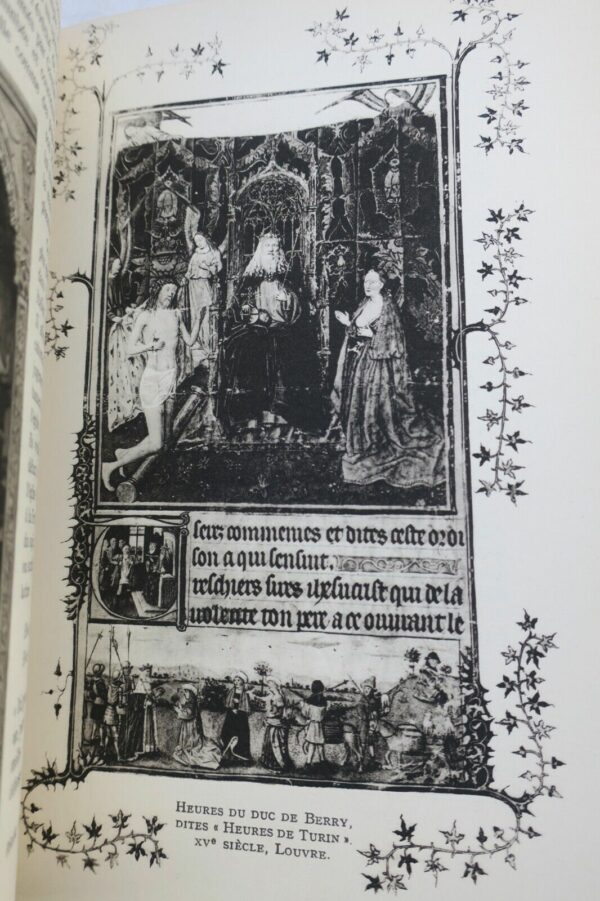 seurs commemes et dites ceste oroi
son a qui sensuit.
reschiers sires ihesucrist qui de la
volente ton pere a ce ouurant le
HEURES DU DUC DE BERRY,
DITES « HEURES DE TURIN ».
XVe SIÈCLE, LOUVRE.